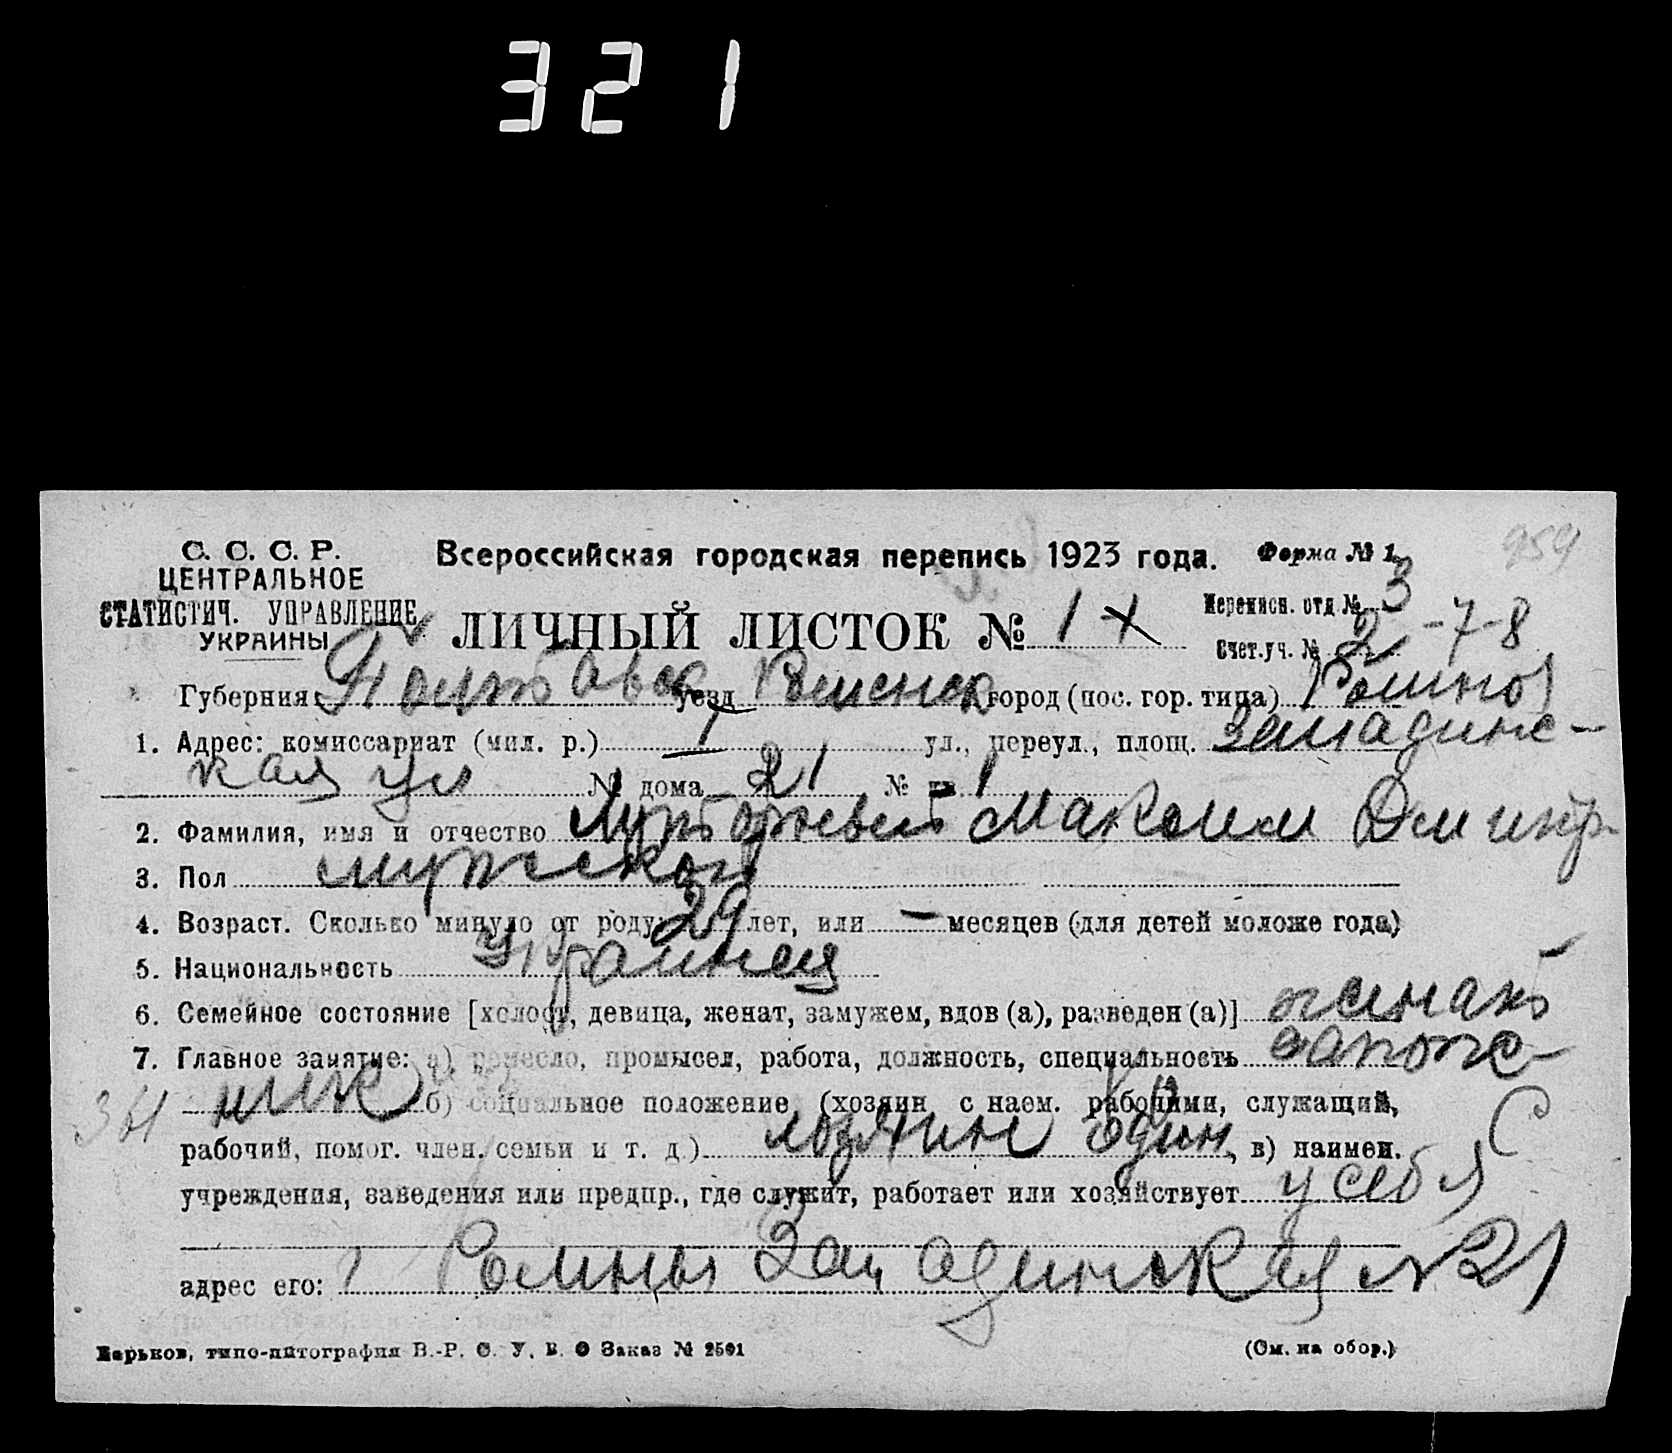 321
959
С. С. С. Р.
ЦЕНТРАЛЬНОЕ
СТАТИСТИЧ. УПРАВЛЕНИЕ
УКРАИНЫ
Всероссийская городская перепись 1923 года. Форма № 1
ЛИЧНЫЙ ЛИСТОК № 1
Переписн. отд № 3
Счет.уч. № 2 -7-8
Губерния: Полтавск уезд Роменск город (пос. гор. типа) Ромны
1. Адрес: комиссариат (мил. р.) 1 ул., переул., площ.
кая ул № дома 21 № кв. 1
2. Фамилия, имя и отчество Максим Дмитр.
3. Пол мужской
4. Возраст. Сколько минуло от роду 29 лет, или — месяцев (для детей моложе года)
5. Национальность украинец
6. Семейное состояние [холост, девица, женат, замужем, вдов (а), разведен (а)] женат
7. Главное занятие: а) ремесло, промысел, работа, должность, специальность сапож-
ник б) социальное положение (хозяин с наем. рабочими, служащий,
рабочий, помог. член. семьи и т. д.) хозяин один, в) наимен.
учреждения, заведения или предпр., где служит, работает или хозяйствует у себя
адрес его: г Ромны № 21
Харьков, типо-литография В.-Р. С. У. В. О Заказ № 2501 (См. на обор.)